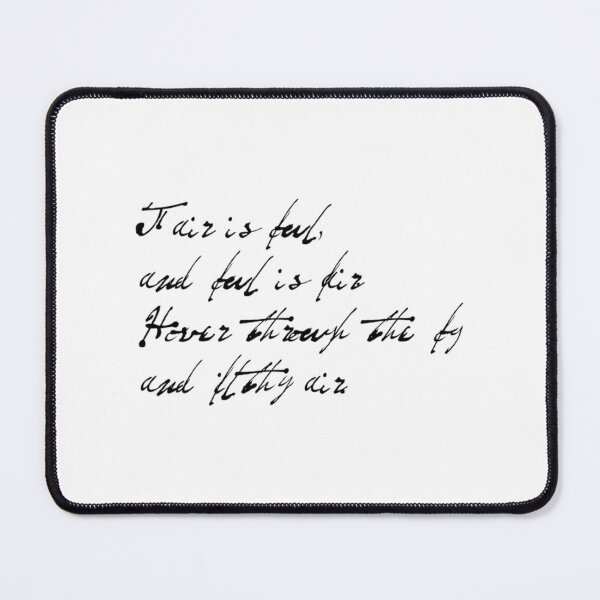 Fair is foul,
and foul is fair
Hover through the fog
and filthy air.